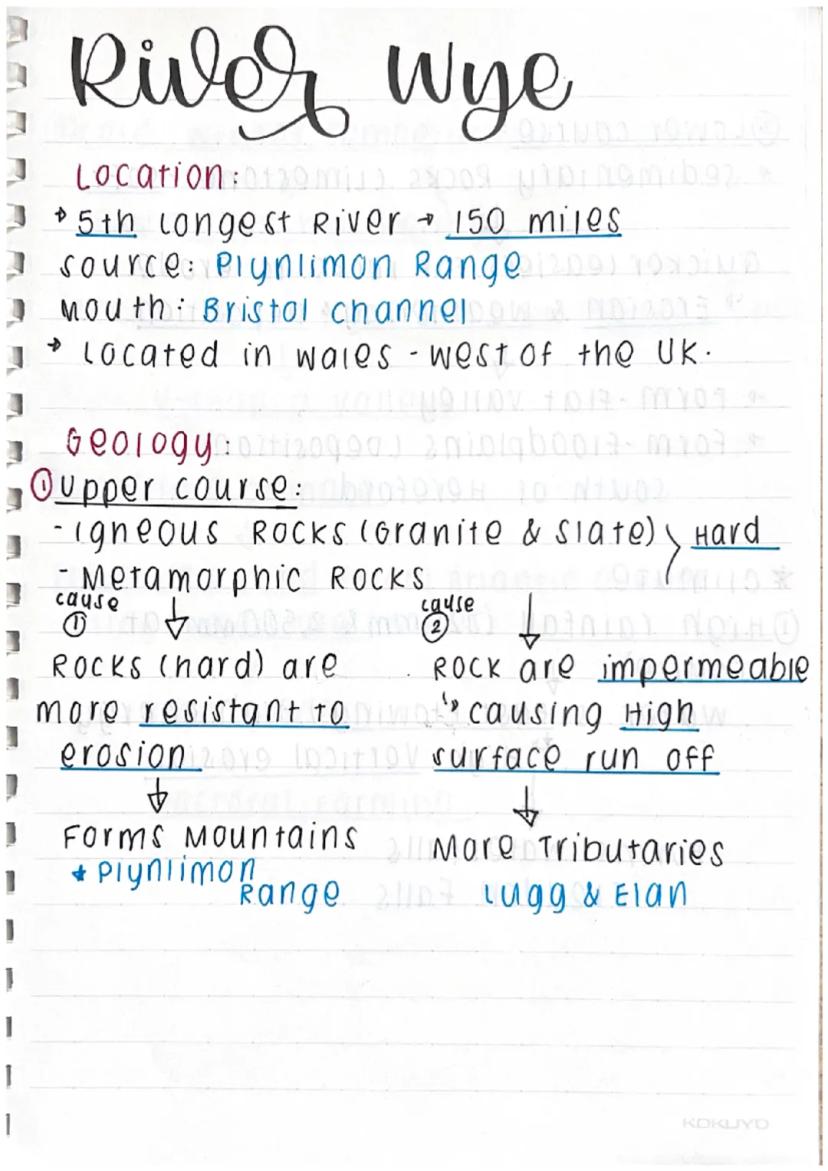 River Wye
Location:
→ 5th longest River → 150 miles
source: Plynlimon Range
mouth: Bristol channel
→ Located in Wales - west of the UK.
Geology:
① Upper course:
- Igneous Rocks (Granite & Slate) } Hard
- Metamorphic Rocks
cause ① ↓
Rocks (hard) are
more resistant to
erosion
↓
Forms Mountains
* Plynlimon
Range
cause ② ↓
Rock are impermeable
↳ causing High
surface run off
↓
More Tributaries
Lugg & Elan
KOKUYO